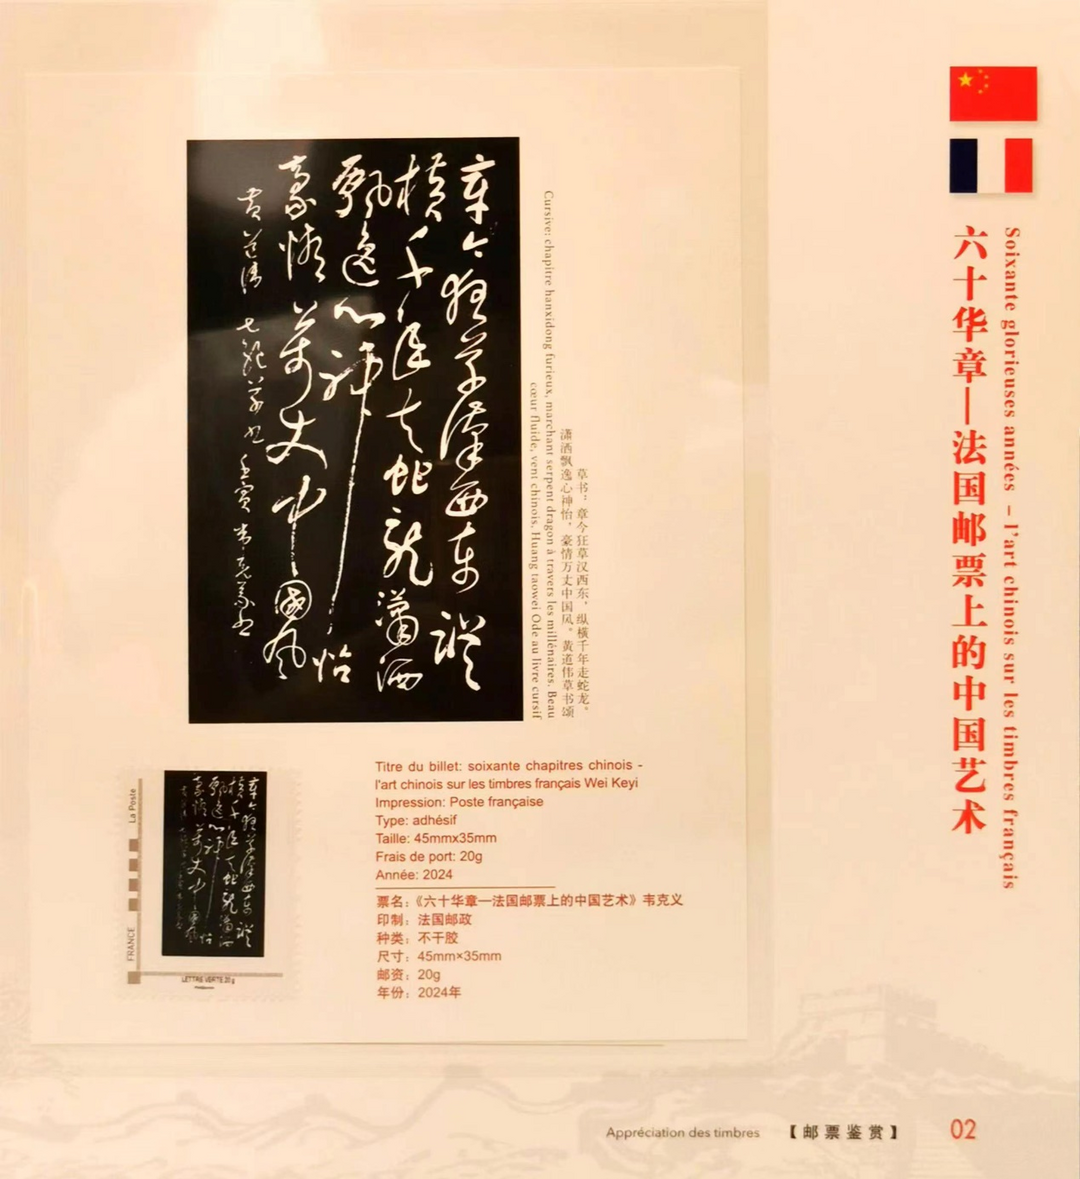 六十华章—法国邮票上的中国艺术
Soixante glorieuses années – l'art chinois sur les timbres français
章今狂草汉西东縱
横千年走蛇龙潇洒
飘逸心神怡
豪情萬丈中國风
黄道偉
草书：章今狂草汉西东，纵横千年走蛇龙。
潇洒飘逸心神怡，豪情万丈中国风。黄道伟草书颂
Cursive: chapitre hanxidong furieux, marchant serpent dragon à travers les millénaires. Beau
cœur fluide, vent chinois, Huang taowei Ode au livre cursif
La Poste
FRANCE
LETTRE VERTE 20 g
Titre du billet: soixante chapitres chinois -
l'art chinois sur les timbres français Wei Keyi
Impression: Poste française
Type: adhésif
Taille: 45mmx35mm
Frais de port: 20g
Année: 2024
票名：《六十华章—法国邮票上的中国艺术》韦克义
印制：法国邮政
种类：不干胶
尺寸：45mm×35mm
邮资：20g
年份：2024年
Appréciation des timbres 【邮票鉴赏】 02